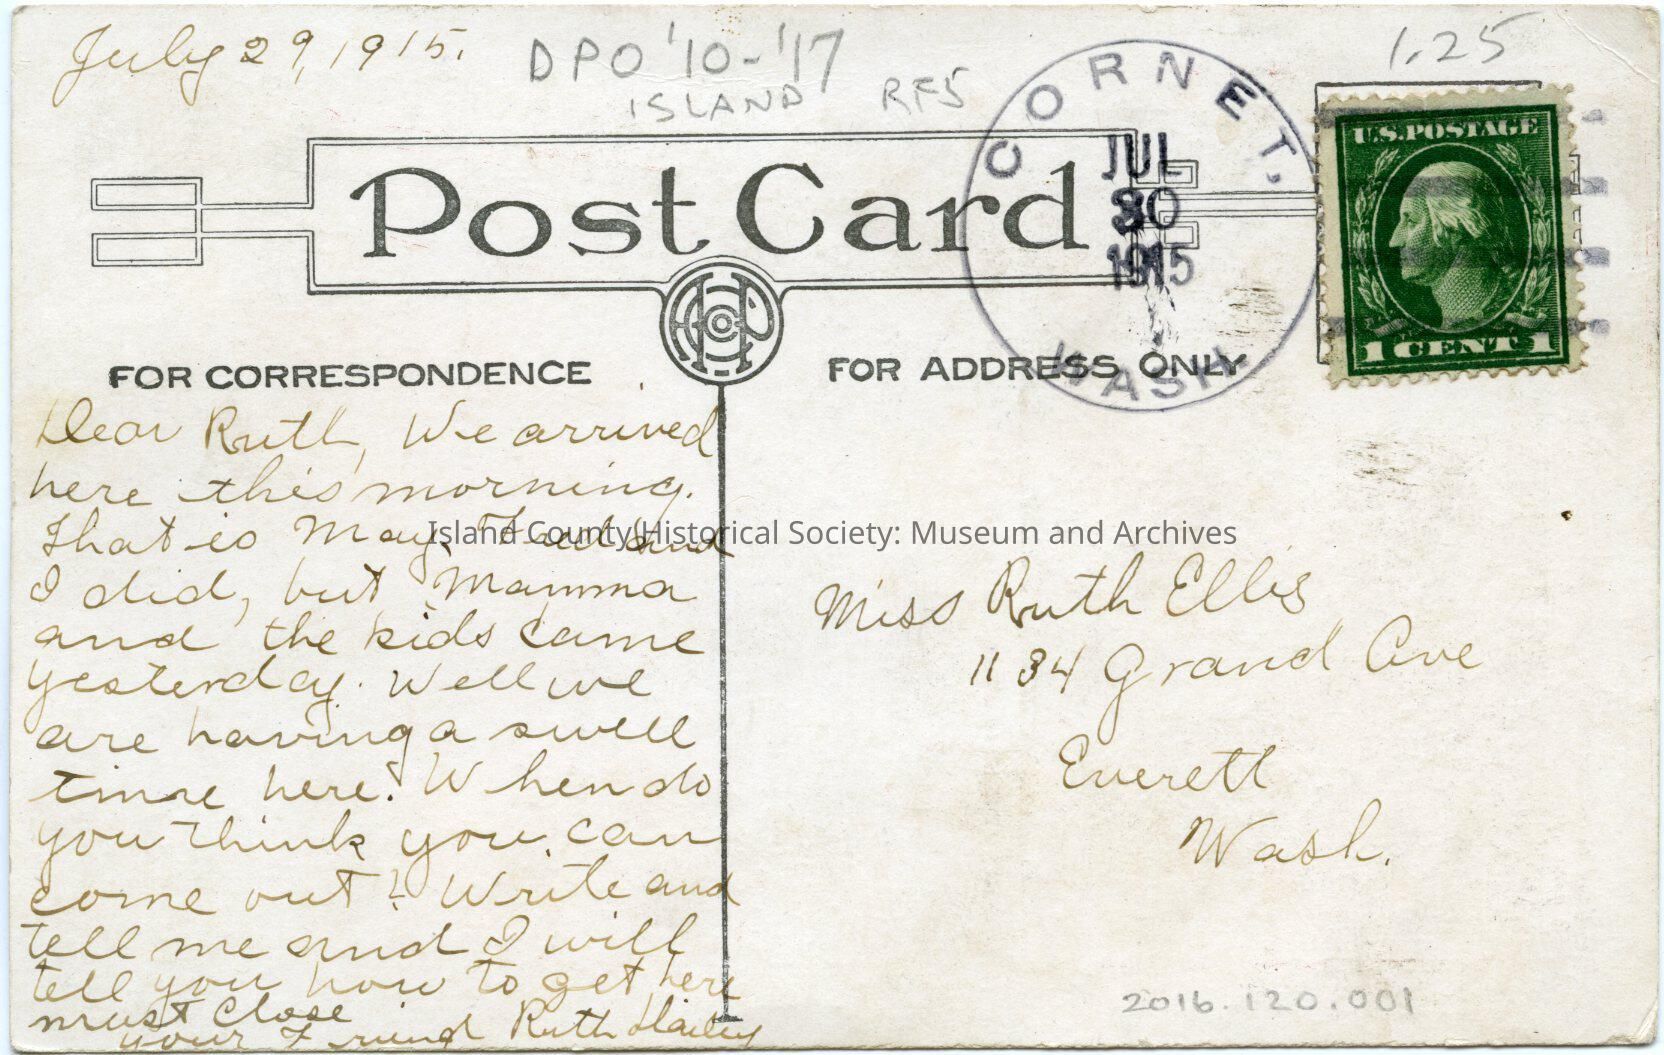 July 29, 1915.
DPO '10-'17
ISLAND RF5
1.25
CORNET.
JUL
30
1915
WASH
U.S. POSTAGE
1 CENT 1
Post Card
FOR CORRESPONDENCE
FOR ADDRESS ONLY
Dear Ruth, We arrived
here this morning.
That is May, Thad and
I did, but Mamma
and the kids came
yesterday. Well we
are having a swell
time here. When do
you think you can
come out? Write and
tell me and I will
tell you how to get here
must close
your Friend Ruth Hailey
Island County Historical Society: Museum and Archives
Miss Ruth Ellis
1134 Grand Ave
Everett
Wash.
2016.120.001